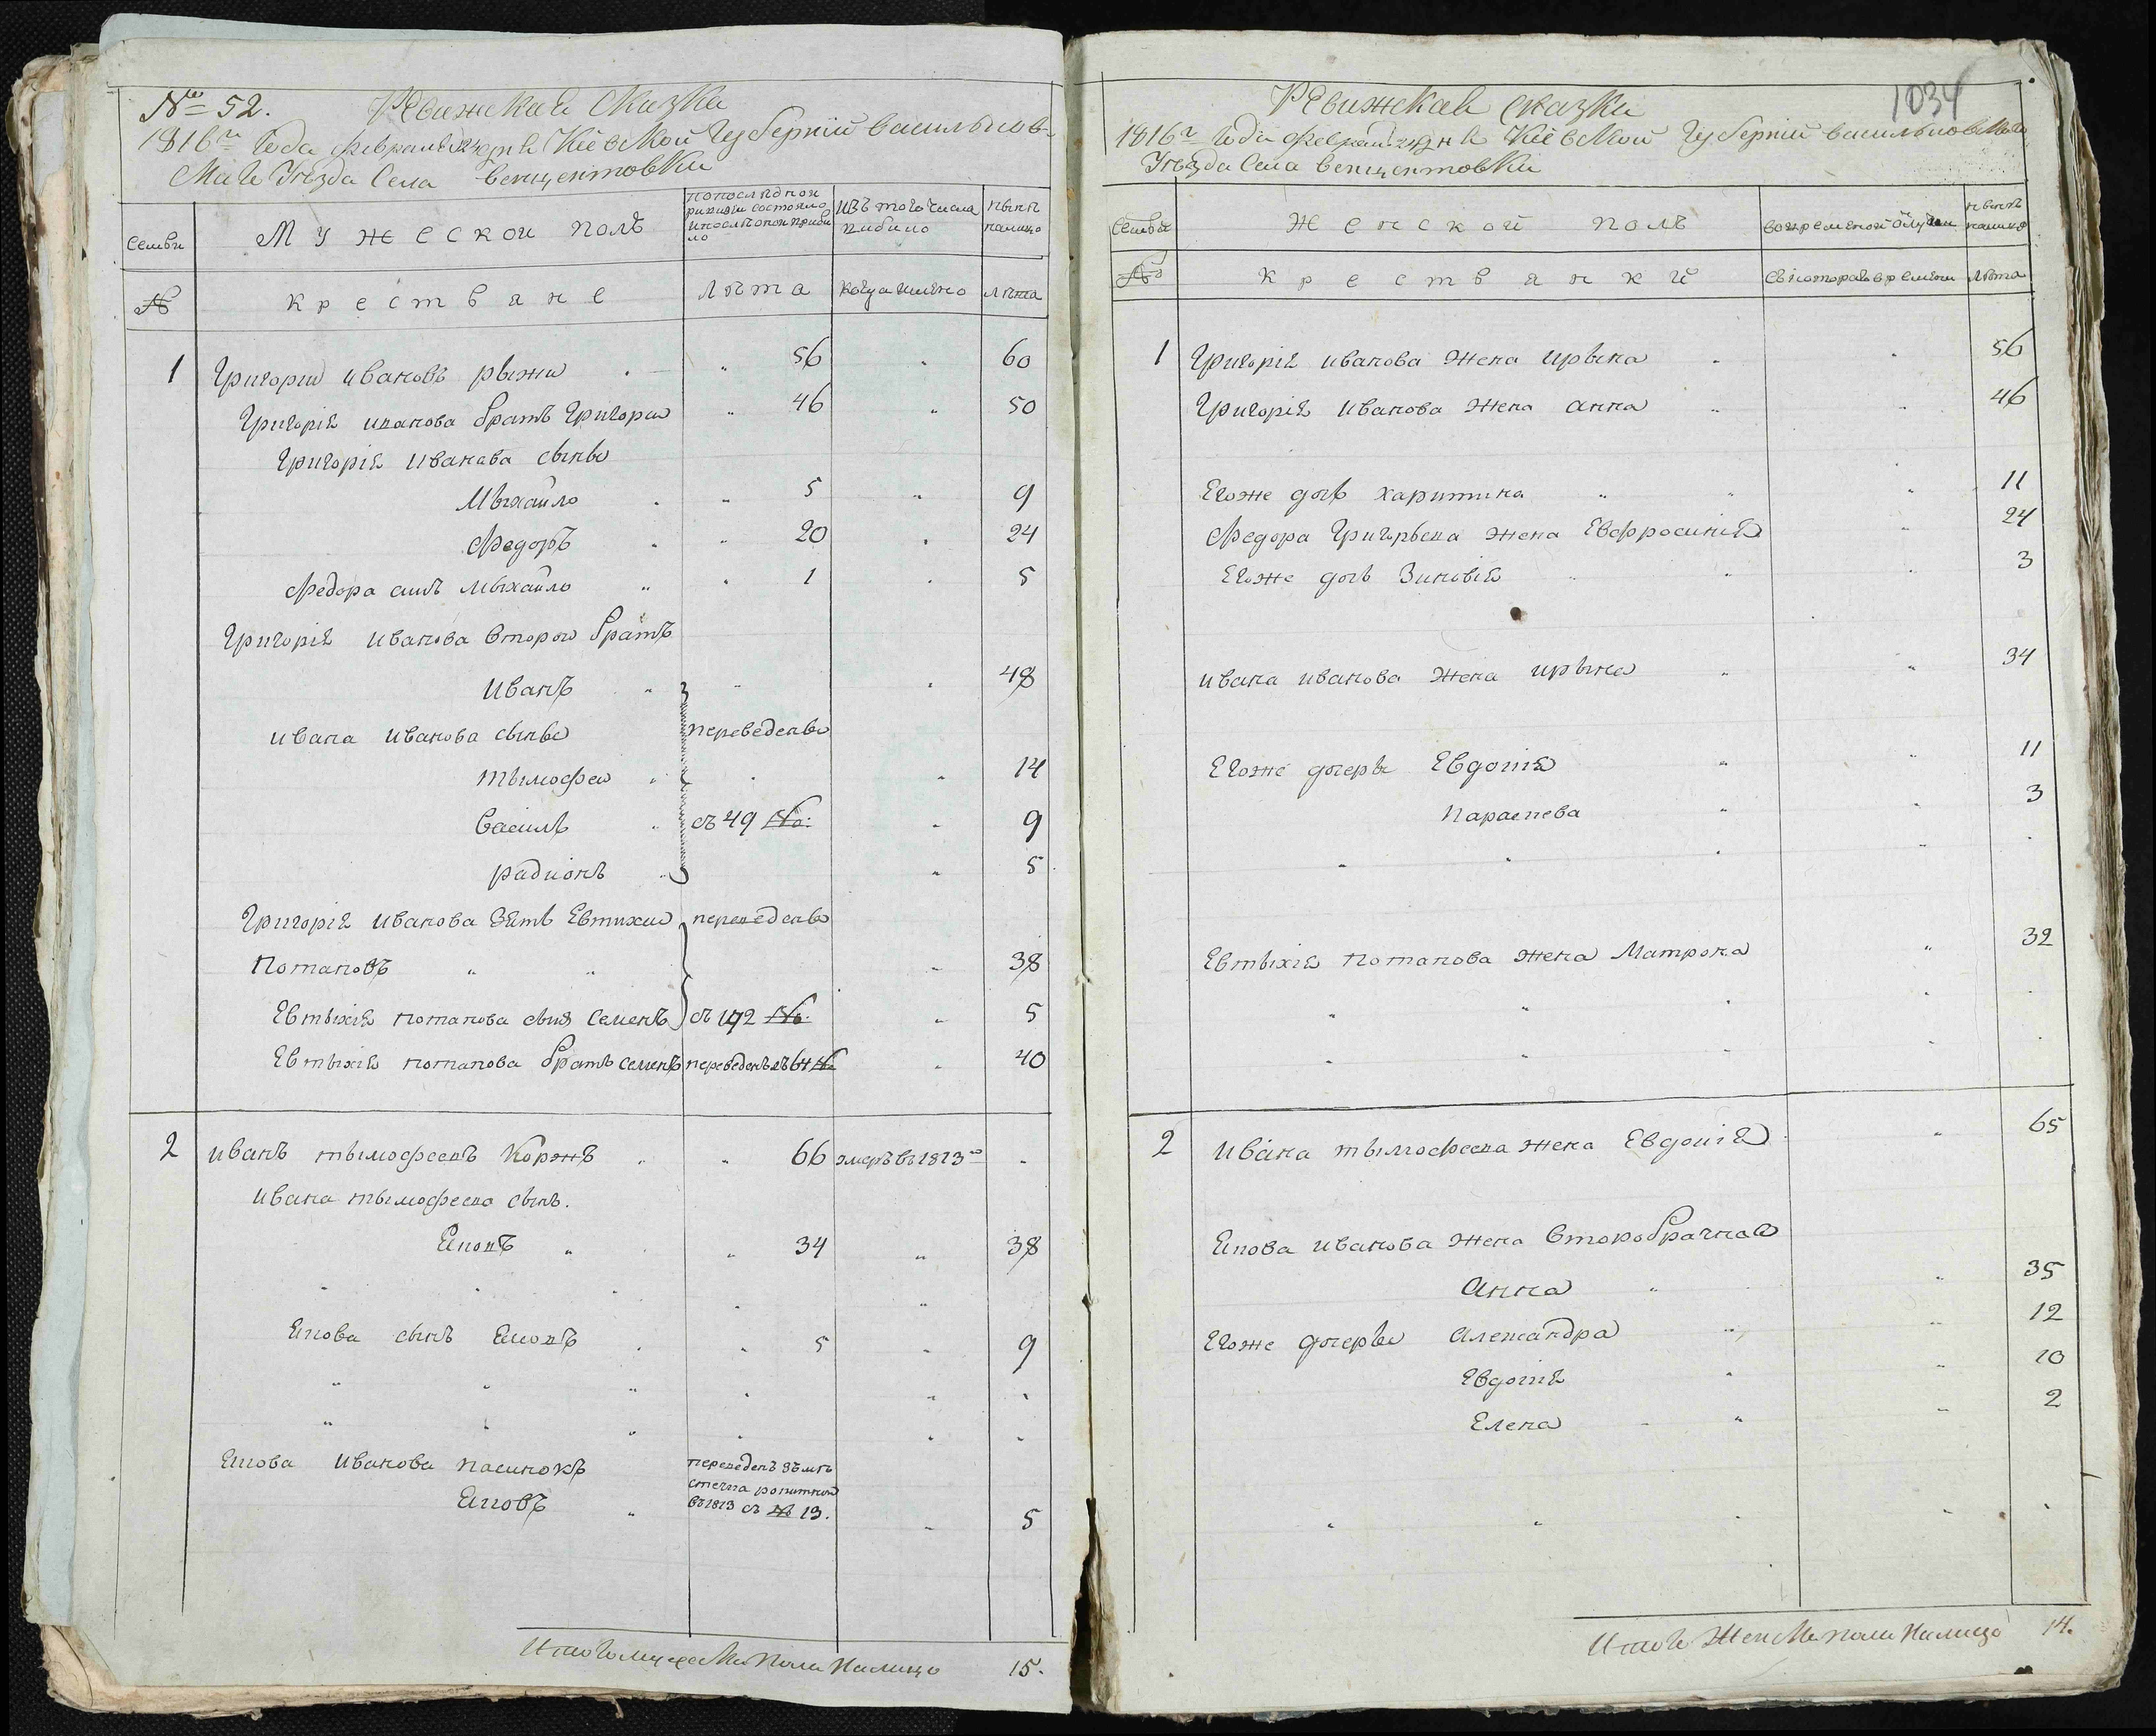 № 52. Ревижская Сказка
1816го Года февраля 24 дня Кіевской Губерніи васильков-
ска Уезда Села венцентовки
Семьи
Мужеской полъ
попоследнои ривизіи состояло
и после оной прибыло
изъ того числа выбыло
ныне налицо
№
крестьяне
Лета
когда имяно
лета
1 Григории ивановъ рыжи 56 60
Григорія иванова братъ Григори 46 50
Григорія иванова сыны
Мыхайло 5 9
Федоръ 20 24
Федора синъ мыхайло 1 5
Григорія иванова второи братъ
иванъ 48
ивана иванова сыны переведены
тымофеи 14
василь съ 49 №: 9
радионъ 5
Григорія иванова зять Евтихи переведены
потаповъ 38
Евтыхія потапова сынъ семенъ съ 142 №. 5
Евтыхія потапова братъ семенъ переведенъ съ 64 № 40
2 иванъ тымофеевъ Коржъ 66 умеръ въ 1813го
ивана тымофеева сынъ.
Яковъ 34 38
Якова сынъ Яковъ 5 9
Якова иванова пасинокъ переведенъ
Яковъ въ 1813 съ № 13. 5
Итого мужеска пола Налицо 15.
1034
Ревижская сказка
1816г Года Феврал. 24 дня Кіевской Губерніи васильковского
Уезда Села венцентовки
Семьи
Женской полъ
вовременой отлучки
ныне налицо
№
крестьянки
съ которого времени
лета
1 Григорія иванова жена ирына 56
Григорія иванова жена анна 46
Егоже дочь харитина 11
Федора Григорьева жена Евфросинія 24
Егоже дочь Зиновія 3
ивана иванова жена ирына 34
Егоже дочеры Евдокія 11
параскева 3
Евтыхія потапова жена Матрона 32
2 ивана тымофеева жена Евдокія 65
Якова иванова жена второбрачная
Анна 35
Егоже дочеры Александра 12
Евдокія 10
Елена 2
Итого Женска пола Налицо 14.